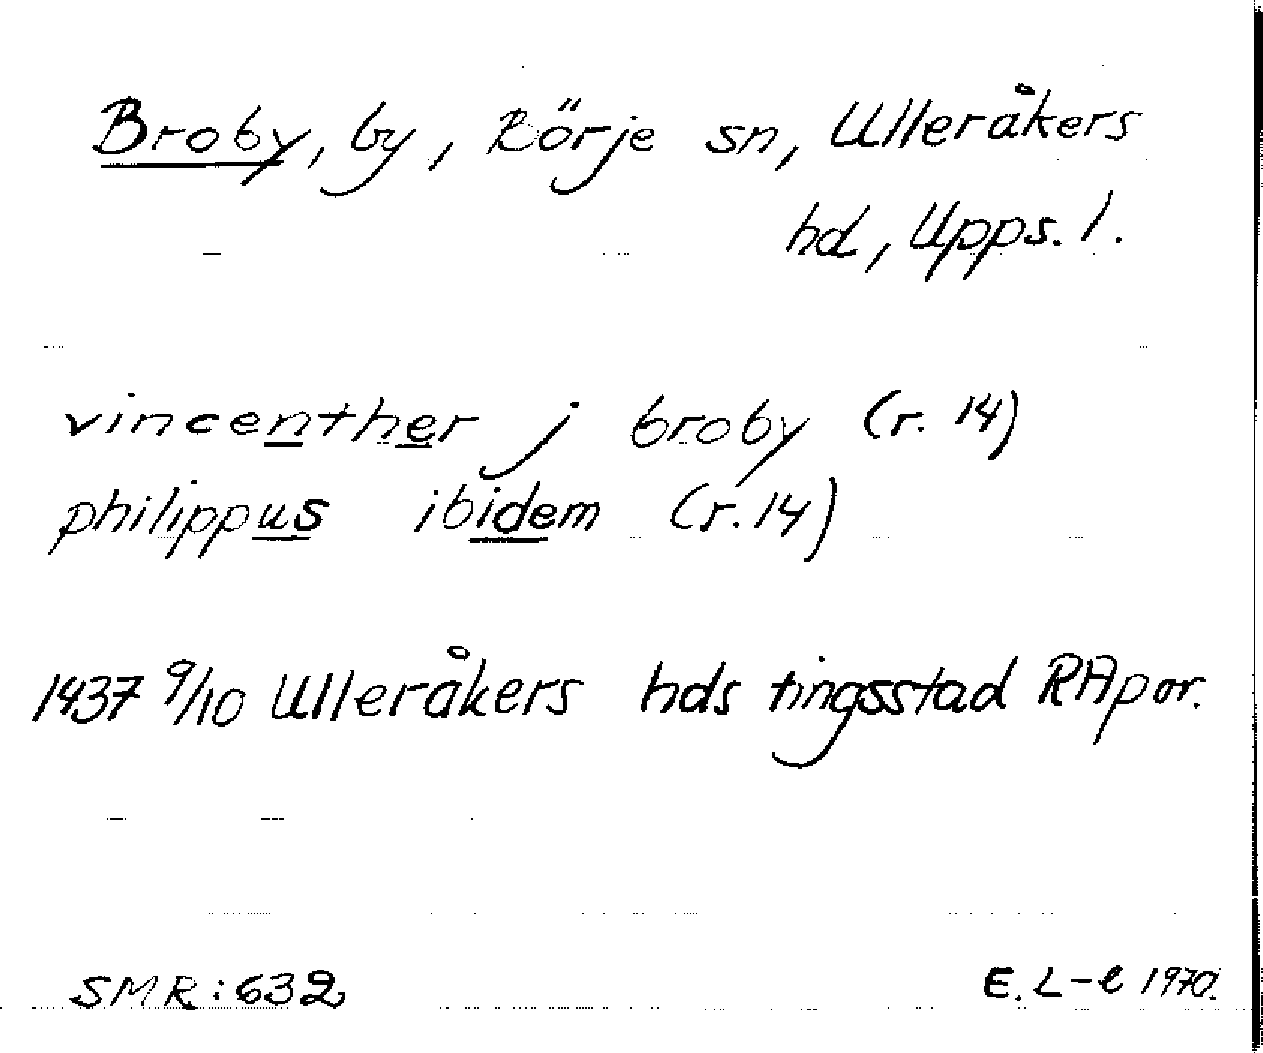 Broby, by, Börje sn, Ulleråkers
hd, Upps. l.
vincenther j broby (r. 14)
philippus ibidem (r. 14)
1437 9/10 Ulleråkers hds tingsstad RApor.
SMR: 632
E. L-e 1970.